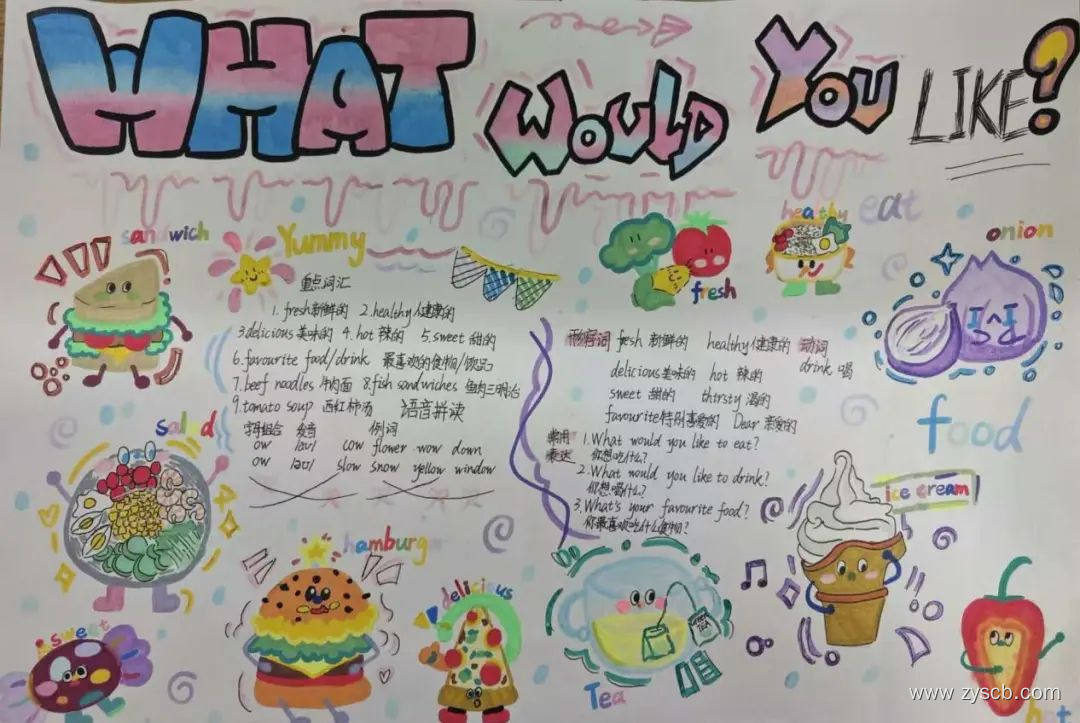 WHAT WOULD YOU LIKE?
sandwich
Yummy
重点词汇
1. fresh新鲜的 2.healthy健康的
3.delicious美味的 4.hot 辣的 5.sweet 甜的
6.favourite food/drink 最喜欢的食物/饮品
7.beef noodles 牛肉面 8.fish sandwiches 鱼肉三明治
9.tomato soup 西红柿汤 语音拼读
字母组合 发音 例词
ow /aʊ/ cow flower wow down
ow /əʊ/ slow snow yellow window
salad
sweet
hamburg
delicious
fresh
healthy eat
onion
food
形容词 fresh 新鲜的 healthy健康的 动词
drink 喝
delicious美味的 hot 辣的
sweet 甜的 thirsty 渴的
favourite特别喜爱的 Dear 亲爱的
常用
表达
1.What would you like to eat?
你想吃什么?
2.What would you like to drink?
你想喝什么?
3.What's your favourite food?
你最喜欢吃什么食物?
ice cream
GREEN
TEA
Tea
hot
www.zyscb.com